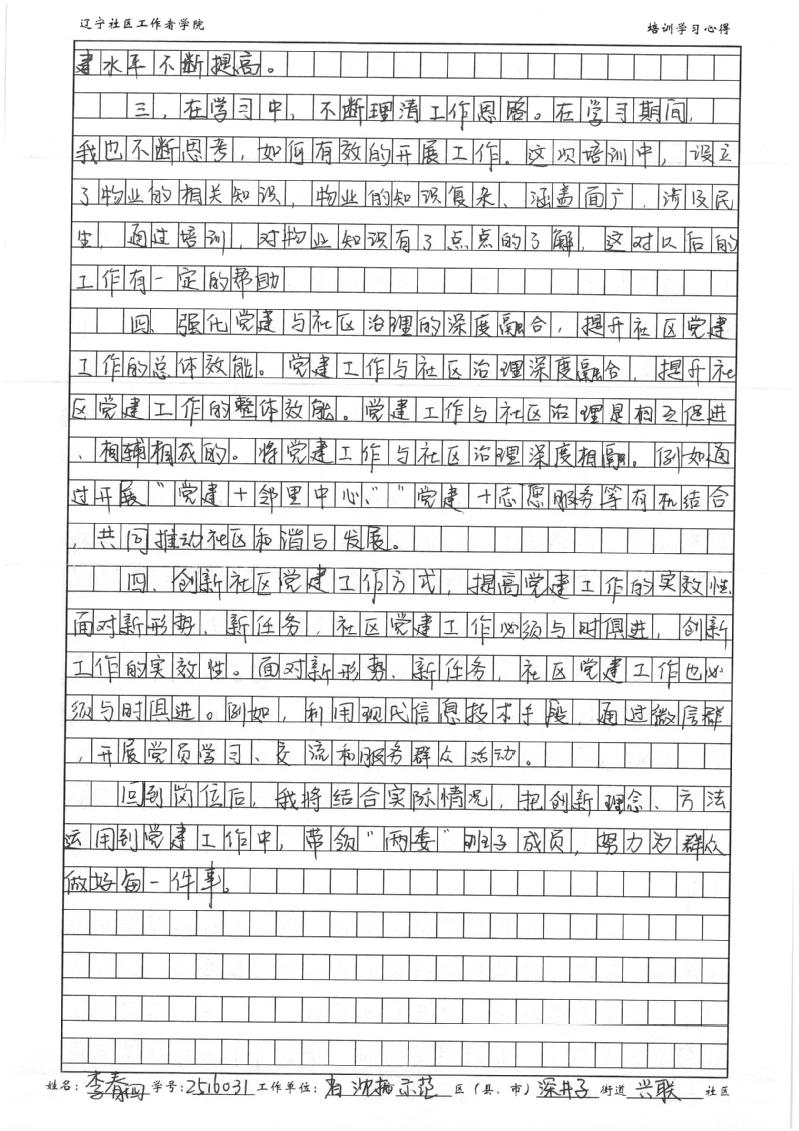 辽宁社区工作者学院 培训学习心得
建水平不断提高。
三、在学习中，不断理清工作思路。在学习期间，
我也不断思考，如何有效的开展工作。这次培训中，设立
了物业的相关知识，物业的知识复杂、涵盖面广，涉及民
生，通过培训，对物业知识有了点点的了解，这对以后的
工作有一定的帮助
四、强化党建与社区治理的深度融合，提升社区党建
工作的总体效能。党建工作与社区治理深度融合，提升社
区党建工作的整体效能。党建工作与社区治理是相互促进
、相辅相成的。将党建工作与社区治理深度相融。例如通
过开展“党建＋邻里中心、”“党建＋志愿服务等有机结合
，共同推动社区和谐与发展。
四、创新社区党建工作方式，提高党建工作的实效性
面对新形势、新任务，社区党建工作必须与时俱进，创新
工作的实效性。面对新形势、新任务，社区党建工作也必
须与时俱进。例如，利用现代信息技术手段，通过微信群
，开展党员学习、交流和服务群众活动。
回到岗位后，我将结合实际情况，把创新理念、方法
运用到党建工作中，带领“两委”班子成员，努力为群众
做好每一件事。
姓名：李春 学号：2516031 工作单位： 沈抚示范 区（县、市）深井子 街道 兴联 社区